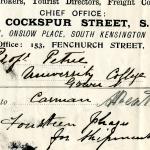 brokers, Tourist Directors, Freight Co
CHIEF OFFICE:
COCKSPUR STREET, S.
, ONSLOW PLACE, SOUTH KENSINGTON
Office: 153, FENCHURCH STREET,
Prof Petrie
University College
Gower
to Carman
Fourteen
for Shipment